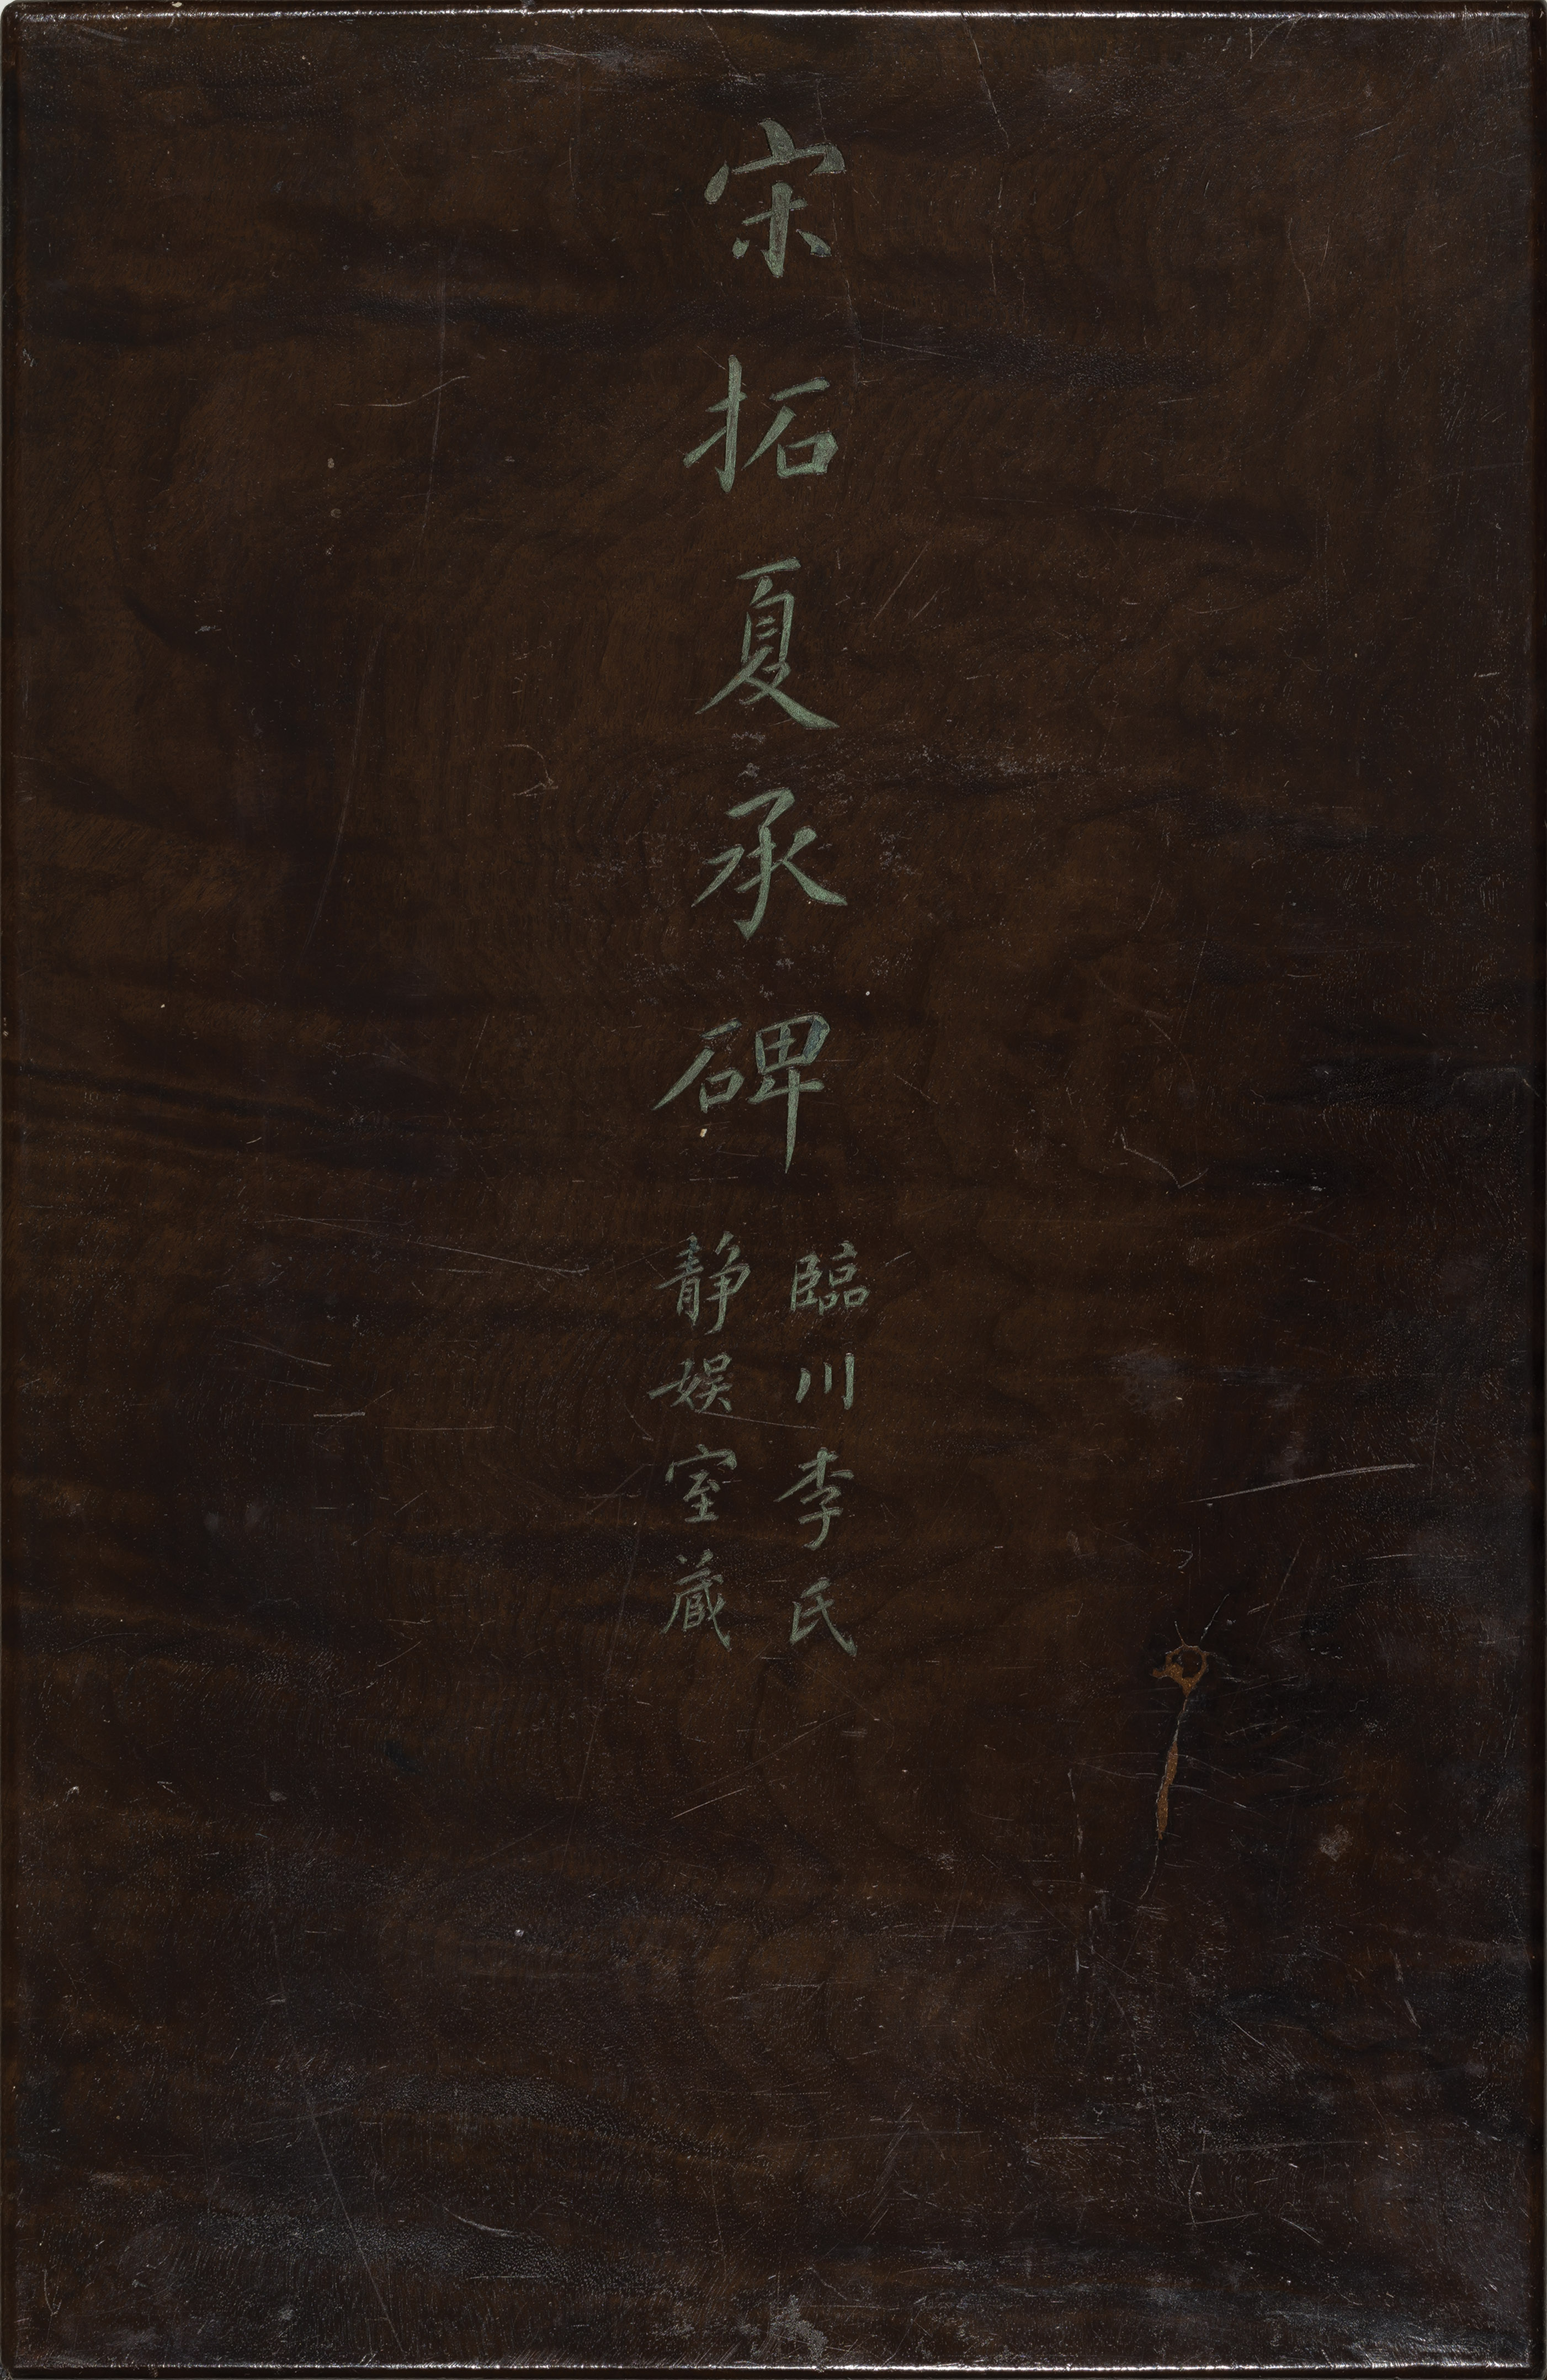 宋拓夏承碑
臨川李氏
靜娱室藏